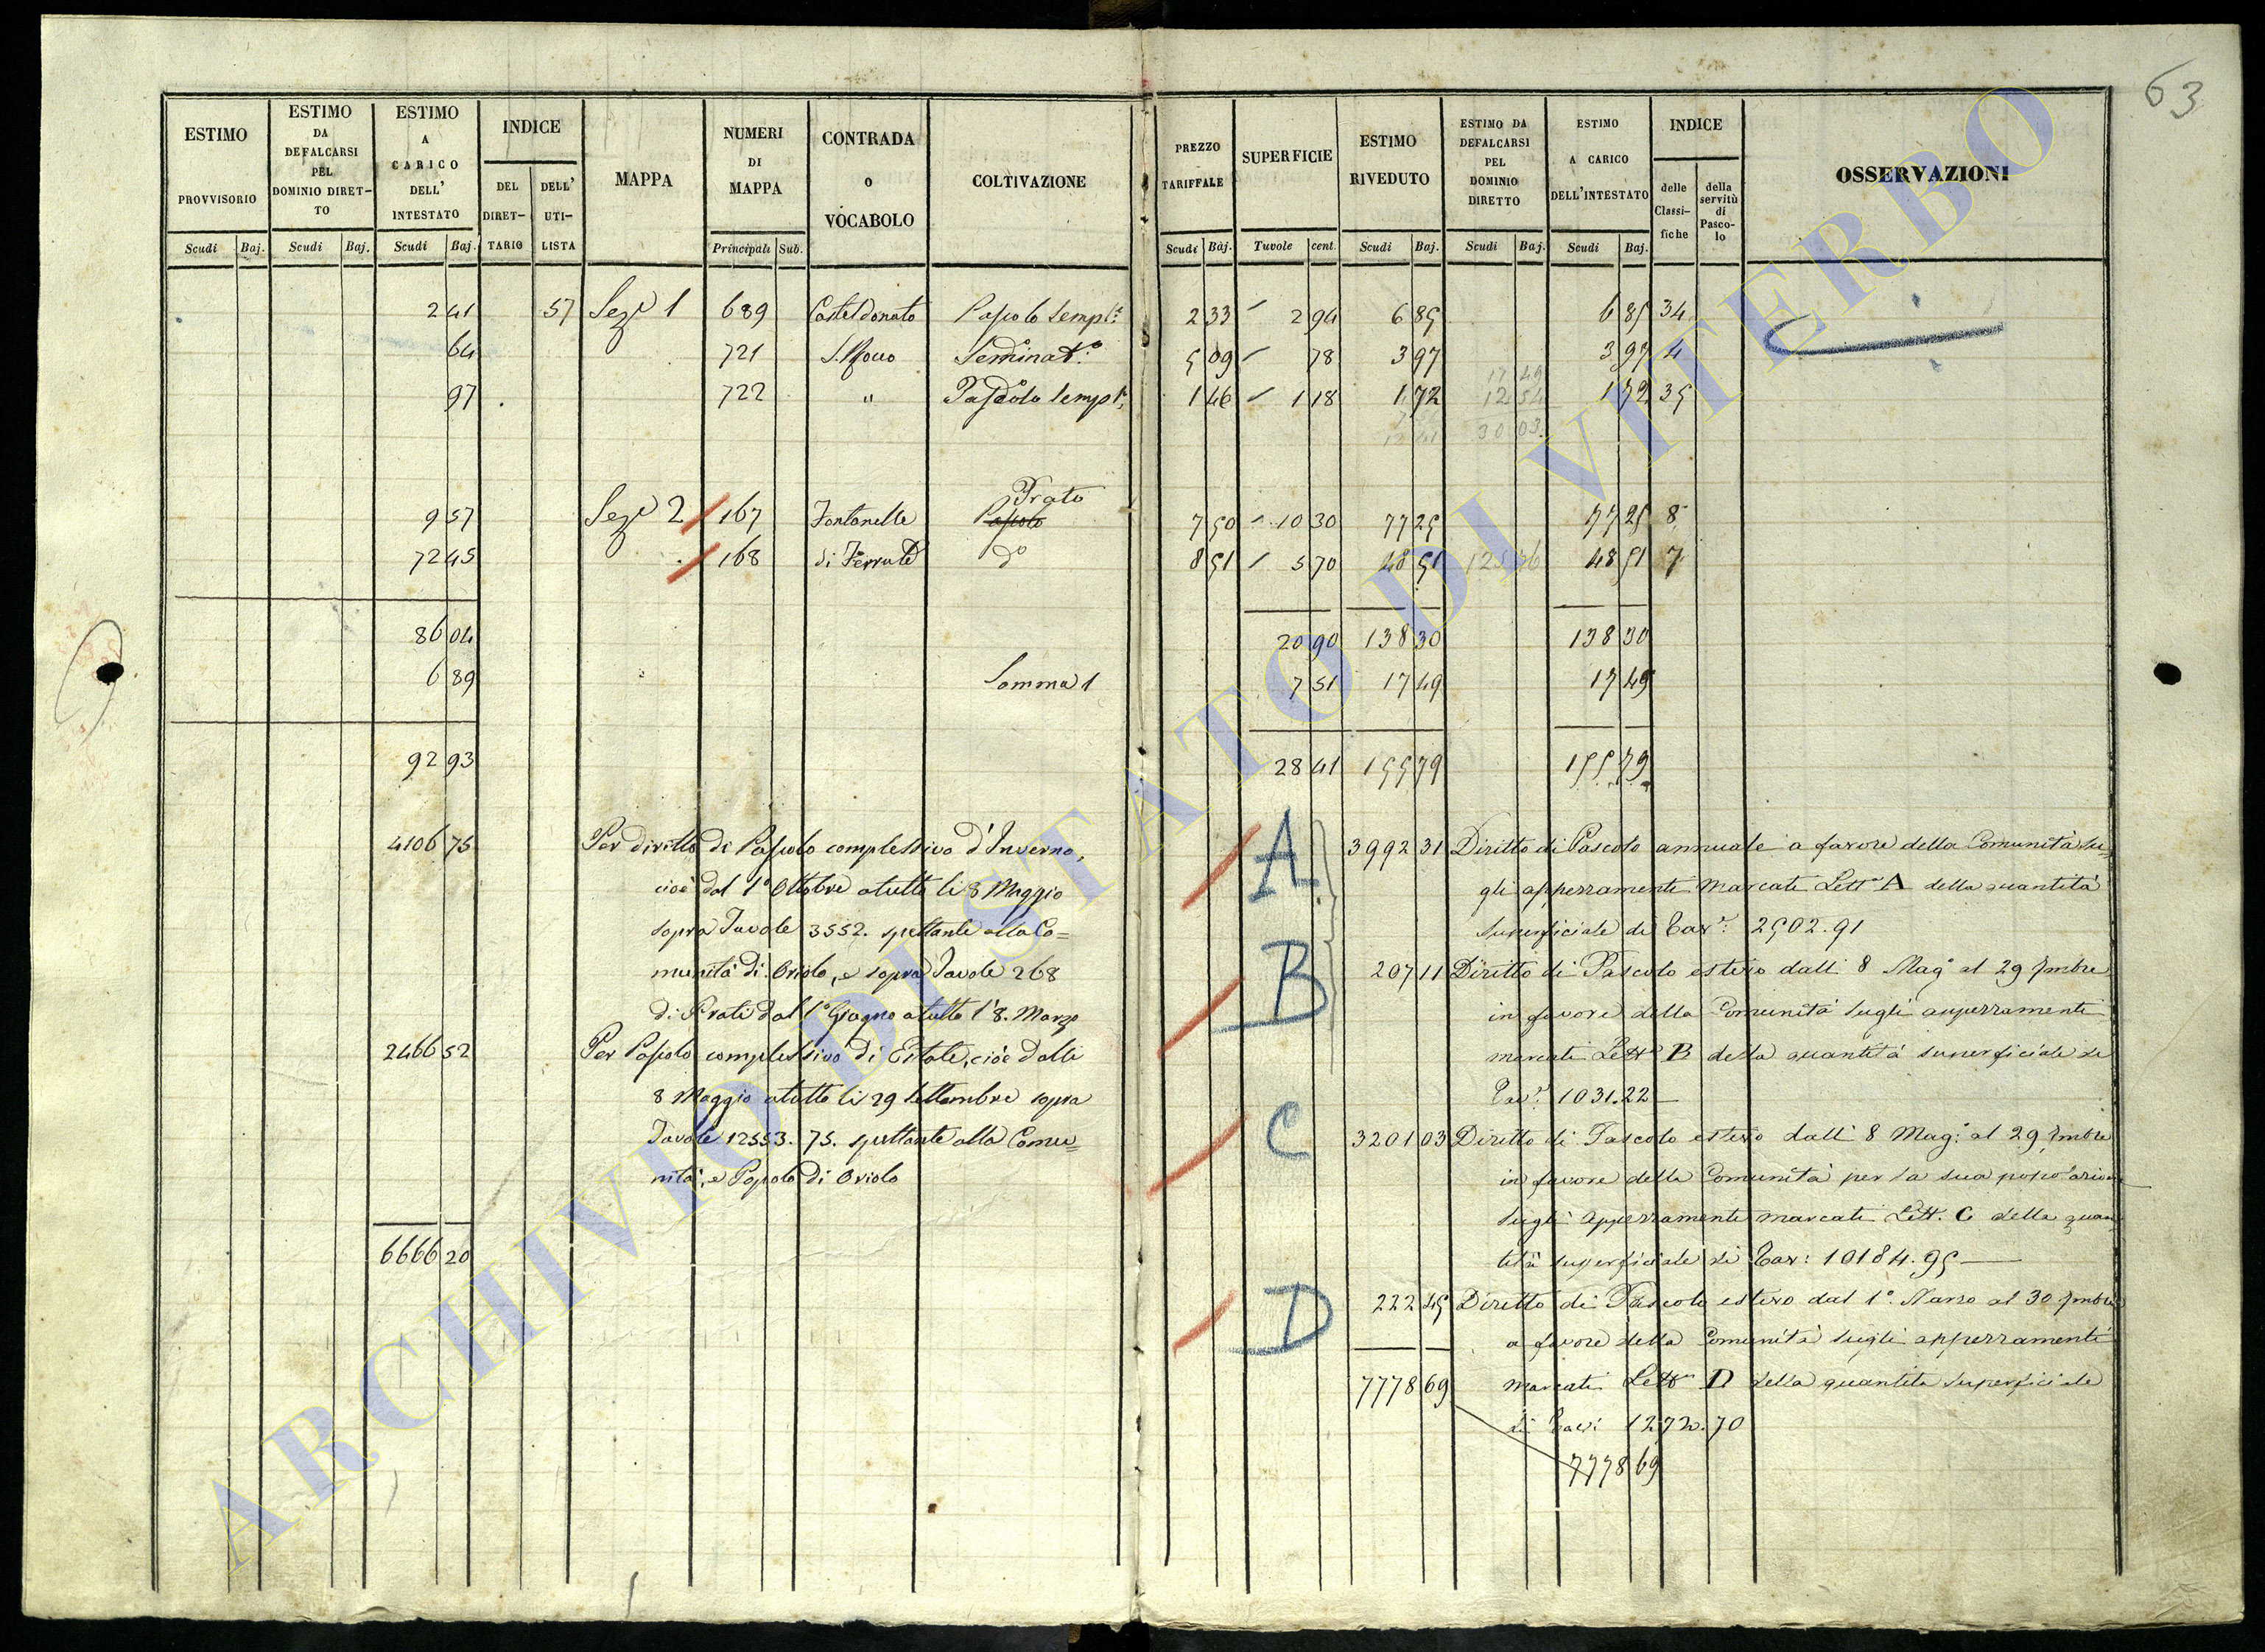 63
ESTIMO PROVVISORIO
ESTIMO DA DEFALCARSI PEL DOMINIO DIRETTO
ESTIMO A CARICO DELL' INTESTATO
INDICE
DEL DIRETTARIO
DELL' UTILISTA
MAPPA
NUMERI DI MAPPA
CONTRADA O VOCABOLO
COLTIVAZIONE
PREZZO TARIFFALE
SUPERFICIE
ESTIMO RIVEDUTO
ESTIMO DA DEFALCARSI PEL DOMINIO DIRETTO
ESTIMO A CARICO DELL'INTESTATO
INDICE
delle Classifiche
della servitù di Pascolo
OSSERVAZIONI
Scudi Baj. Scudi Baj. Scudi Baj. Principali Sub. Scudi Baj. Tavole cent. Scudi Baj. Scudi Baj. Scudi Baj.
2 41 57 Seze 1 689 Casteldonato Pascolo sempl: 2 33 2 94 6 85 6 85 34
64 721 S. Rocco Seminat: 5 09 78 3 97 3 97 4
97 722 " Pascolo sempl: 1 46 1 18 1 72 1 72 35
30 03
Prato
9 57 Seze 2 167 Fontanelle Pascolo 7 50 10 30 77 25 77 25 8
72 45 168 di Ferrata do 8 51 5 70 48 51 48 51 7
86 04 20 90 138 30 138 30
6 89 Somma 1 7 51 17 49 17 49
92 93 28 41 155 79 155 79
4106 75 Per diretto di Pascolo complessivo d'Inverno,
cioè dal 1° Ottobre a tutto li 8 Maggio
sopra Tavole 3552. spettante alla Co=
munità di Oriolo, e sopra Tavole 268
di Prati dal 1° Giugno a tutto l'8. Marzo
2466 52 Per Pascolo complessivo di Estate, cioè dalli
8 Maggio a tutto li 29 Settembre sopra
Tavole 12553. 75. spettante alla Comu=
nità, e Popolo di Oriolo
6666 20
A 3992 31 Diritto di Pascolo annuale a favore della Comunità su=
gli apperramenti marcati Lett A della quantità
superficiale di Tav: 2502.91
B 207 11 Diritto di Pascolo estivo dalli 8 Mag° al 29 7mbre
in favore della Comunità sugli apperramenti
marcati Lett B della quantità superficiale di
Tav: 1031.22
C 3201 03 Diritto di Pascolo estivo dalli 8 Mag: al 29 7mbre
in favore della Comunità per la sua popolazione
sugli apperramenti marcati Lett. C della quan
tità superficiale di Tav: 10184.95
D 222 45 Diritto di Pascolo estivo dal 1°. Marzo al 30 7mbre
a favore della Comunità sugli apperramenti
7778 69 marcati Lett D della quantità superficiale
di Tavi 1272.70
7778 69
ARCHIVIO DI STATO DI VITERBO